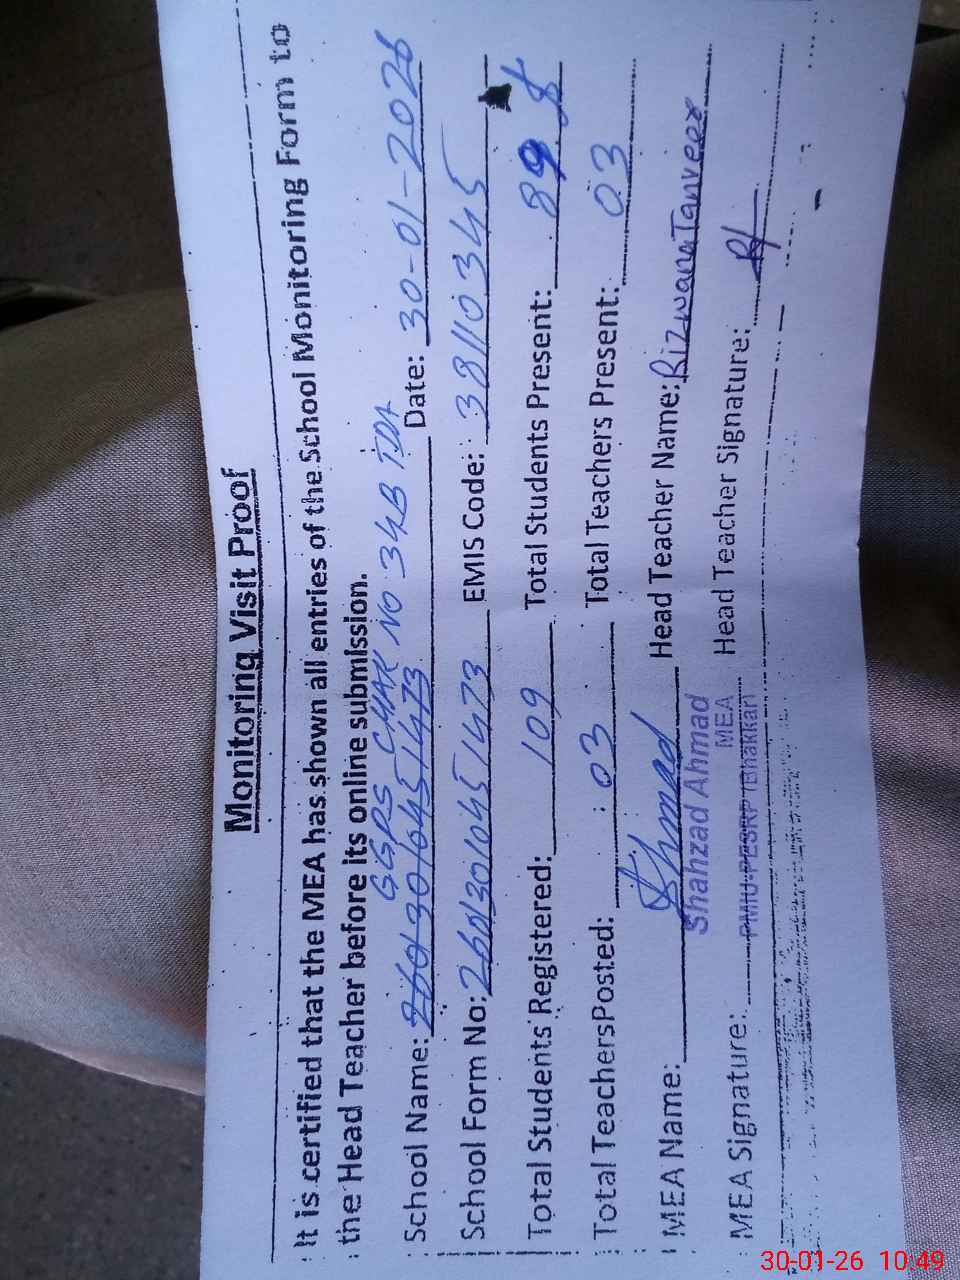 Monitoring Visit Proof
It is certified that the MEA has shown all entries of the School Monitoring Form to
the Head Teacher before its online submission.
GGPS CHAK NO 34B TDA
School Name: 26013010451473 Date: 30-01-2026
School Form No: 26013010451473 EMIS Code: 38110345
Total Students Registered: 109 Total Students Present: 89
Total Teachers Posted: 03 Total Teachers Present: 03
MEA Name: Head Teacher Name: Rizwana Tanveer
Shahzad Ahmad
MEA
MEA Signature: PMIU-PESRP Bhakkar Head Teacher Signature:
30-01-26 10:49